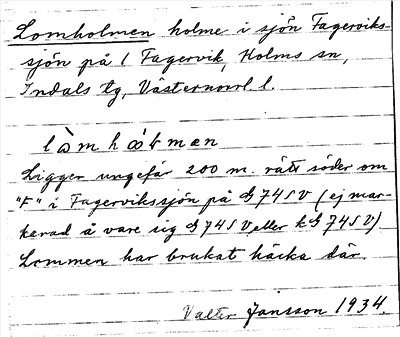 Lomholmen holme i sjön Fagerviks-
sjön på 1 Fagervik, Holms sn,
Indals tg, Västernorrl. l.
Ligger ungefär 200 m. rätt söder om
"F" i Fagervikssjön på G 74 S V (ej mar-
kerad å vare sig G 74 S V eller k G 74 S V)
Lommen har brukat häcka där.
Valter Jansson 1934.